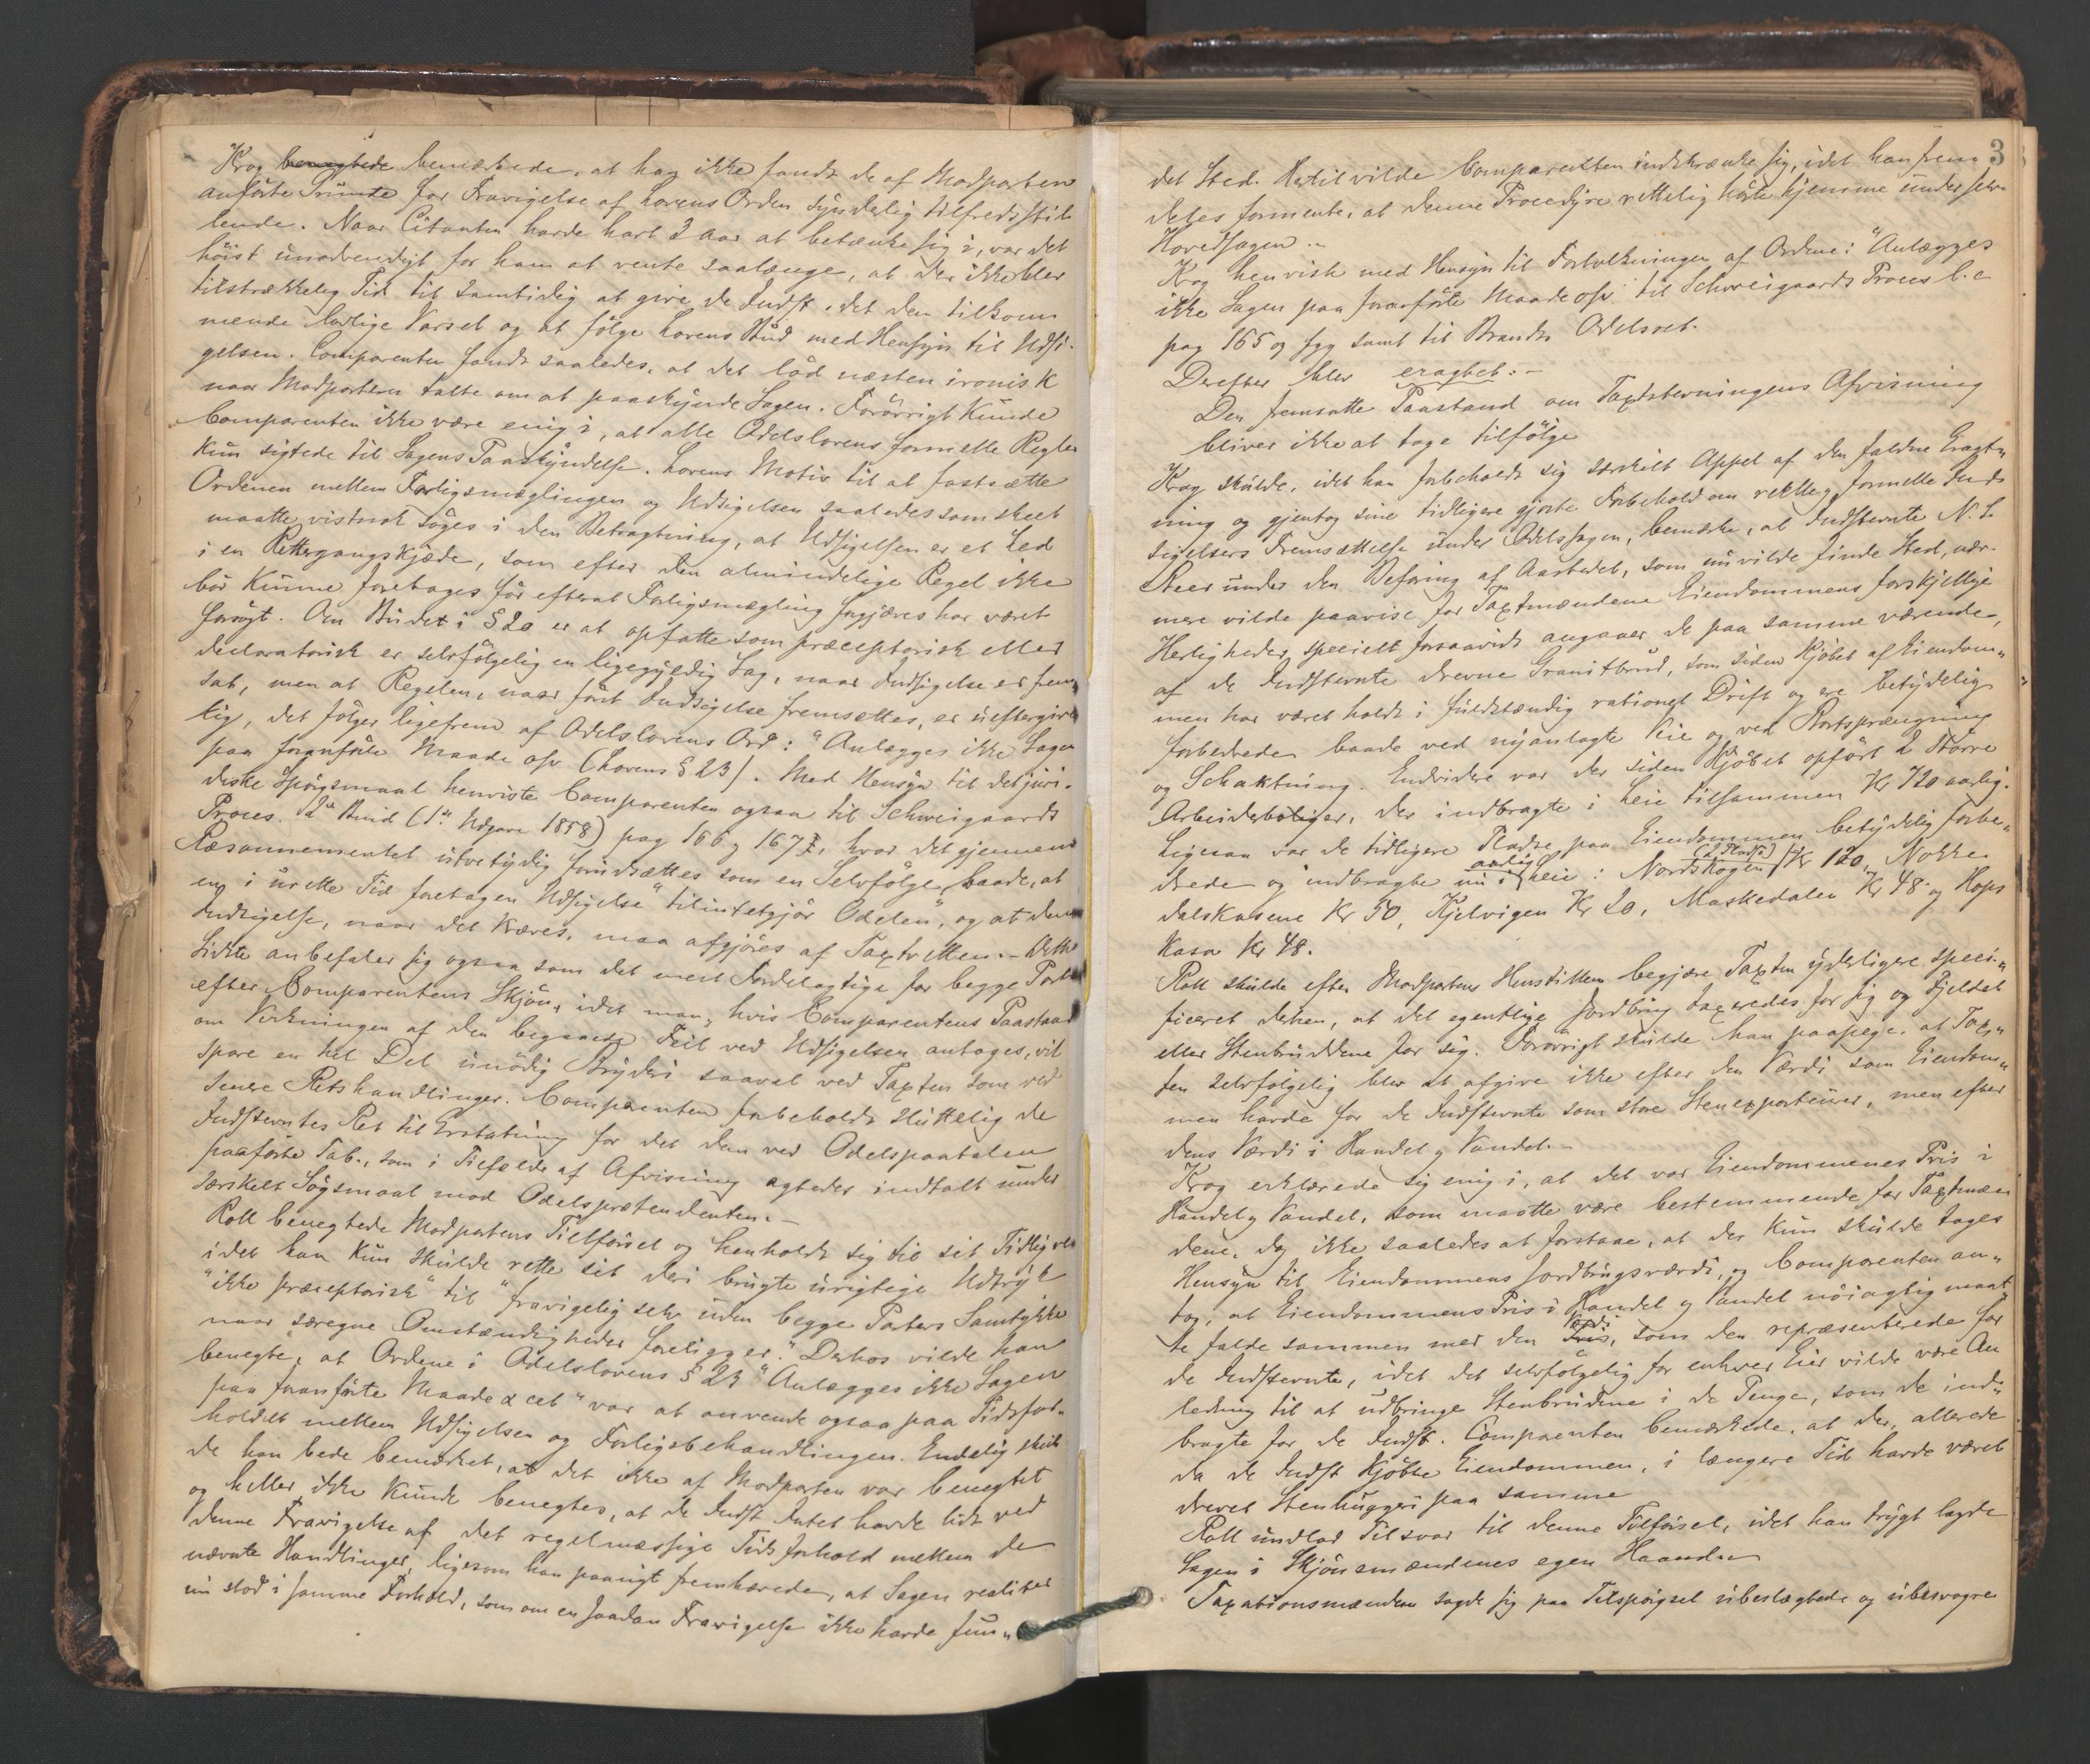 Krog benegtede bemærkede, at han ikke fandt de af Modparten
anførte Grunde for Fravigelse af Lovens Orden synderlig tilfredsstil-
lende. Naar Citanten havde havt 3 Aar at betænke sig i, var det
høist unødvendigt for ham at vente saalænge, at der ikke blev
tilstrækkelig Tid til samtidig at give de Indst. det dem tilkom-
mende lovlige Varsel og at følge Lovens Bud med Hensyn til Udsi-
gelsen. Comparenten fandt saaledes, at det lød næsten ironisk
naar Modparten talte om at paaskynde Sagen. Forøvrigt kunde
Comparenten ikke være enig i, at alle Odelslovens formelle Regler
kun sigtede til Sagens Paaskyndelse. Lovens Motiv til at fastsætte
Ordenen mellem Forligsmæglingen og Udsigelsen saaledes som skeet
maatte vistnok søges i den Betragtning, at Udsigelsen er et Led
i en Rettergangskjæde, som efter den almindelige Regel ikke
bør kunne foretages før efterat Forligsmægling forgjæves har været
forsøgt. Om Budet i § 20 er at opfatte som præceptorisk eller
declaratorisk er selvfølgelig en ligegyldig Sag, naar Indsigelse er frem-
sat, men at Regelen, naar først Indsigelse fremsættes, er ueftergive-
lig, det følger ligefrem af Odelslovens Ord: "Anlægges ikke Sagen
paa foranførte Maade osv (Lovens § 23). Med Hensyn til det juri-
diske Spørgsmaal henviste Comparenten ogsaa til Schweigaards
Proces. 2det Bind (1ste Udgave 1858) pag 166 og 167, hvor det gjennem
Ræsonnementet utvetydig forudsættes som en Selvfølge, baade, at
en i urette Tid foretagen Udsigelse "tilintetgjør Odelen", og at denne
Indsigelse, naar det kræves, maa afgjøres af Taxtretten. – Dette
Sidste anbefaler sig ogsaa som det mest Fordelagtige for begge Parter
efter Comparentens Skjøn, idet man, hvis Comparentens Paastand
om Virkningen af den begaaede Feil ved Udsigelsen antages, vil
spare en hel Del unødig Bryderi saavel ved Taxten som ved
senere Retshandlinger. Comparenten forbeholdt sluttelig de
Indstevntes Ret til Erstatning for det dem ved Odelspaatalen
paaførte Tab, som i Tilfælde af Afvisning agtedes indtalt under
særskilt Søgsmaal mod Odelsprætendenten. –
Roll benegtede Modpartens Tilførsel og henholdt sig til sit Tidligere
idet han kun skulde rette sit deri brugte urigtige Udtryk
"ikke præceptorisk" til "fravigelig selv uden begge Parters Samtykke
naar særegne Omstændigheder foreligger." Derhos vilde han
benegte, at Ordene i Odelslovens § 23 "Anlægges ikke Sagen
paa foranførte Maade &amp; cet" var at anvende ogsaa paa Tidsfor-
holdet mellem Udsigelsen og Forligsbehandlingen. Endelig skul-
de han bede bemærket, at det ikke af Modparten var benegtet
og heller ikke kunde benegtes, at de Indst Intet havde lidt ved
denne Fravigelse af det regelmæssige Tidsforhold mellem de
nævnte Handlinger, ligesom han paanyt fremhævede, at Sagen realiter
nu stod i samme Forhold, som om en saadan Fravigelse ikke havde fun-
3
det Sted. Hertil vilde Comparenten indskrænke sig, idet han frem-
deles formente, at denne Procedure rettelig hørte hjemme under selve
Hovedsagen. –
Krog henviste med Hensyn til Fortolkningen af Ordene: "Anlægges
ikke Sagen paa foranførte Maade osv" til Schweigaards Proces l. c
pag 165 og fgg samt til Brandts Odelsret.
Derefter blev eragtet: –
Den fremsatte Paastand om Taxtstevningens Afvisning
bliver ikke at tage tilfølge
Krog skulde, idet han forbeholdt sig særskilt Appel af den faldne Eragt-
ning og gjentog sine tidligere gjorte Forbehold om rettelig formelle Ind-
sigelsers Fremsættelse under Odelssagen, bemærke, at Indstevnte N. S.
Beer under den Befaring af Aastedet, som nu vilde finde Sted, nær-
mere vilde paavise for Taxtmændene Eiendommens forskjellige
Herligheder, specielt forsaavidt angaaer de paa samme værende,
af de Indstevnte drevne Granitbrud, som siden Kjøbet af Eiendom-
men har været holdt i fuldstændig rationel Drift og ere betydelig
forbedrede baade ved nyanlagte Veie og ved Bortsprængning
og Schaktning. Endvidere var der siden Kjøbet opført 2 større
Arbeiderboliger, der indbragte i Leie tilsammen Kr 720 aarlig.
Ligesaa var de tidligere Pladse paa Eiendommen betydelig forbe-
drede og indbragte nu i aarlig Leie: Nordskogen (2 Pladse) Kr 120, Nokke-
dalskasene Kr 50, Kjelvigen Kr 20, Maskedalen Kr 48 og Hops
kasa Kr 48.
Roll skulde efter Modpartens Henstillen begjære Taxten yderligere speci-
ficeret derhen, at det egentlige Jordbrug taxeredes for sig og Fjeldet
eller Stenbruddene for sig. Forøvrigt skulde han paapege, at Tax-
ten selvfølgelig blev at afgive ikke efter den Værdi som Eiendom-
men havde for de Indstevnte som store Stenexportører, men efter
dens Værdi i Handel og Vandel. –
Krog erklærede sig enig i, at det var Eiendommenes Pris i
Handel og Vandel, som maatte være bestemmende for Taxtmæn-
dene, dog ikke saaledes at forstaae, at der kun skulde tages
Hensyn til Eiendommens Jordbrugsværdi, og Comparenten an-
tog, at Eiendommens Pris i Handel og Vandel nøiagtig maat-
te falde sammen med den Pris Værdi, som den repræsenterede for
de Indstevnte, idet det selvfølgelig for enhver Eier vilde være An-
ledning til at udbringe Stenbruddene i de Penge, som de ind-
bragte for de Indst. Comparenten bemærkede, at der, allerede
da de Indst kjøbte Eiendommen, i længere Tid havde været
drevet Stenhuggeri paa samme
Roll undlod Tilsvar til denne Tilførsel, idet han trygt lagde
Sagen i Skjønsmændenes egen Haand. –
Taxationsmændene sagde sig paa Tilspørgsel ubeslægtede og ubesvogrede